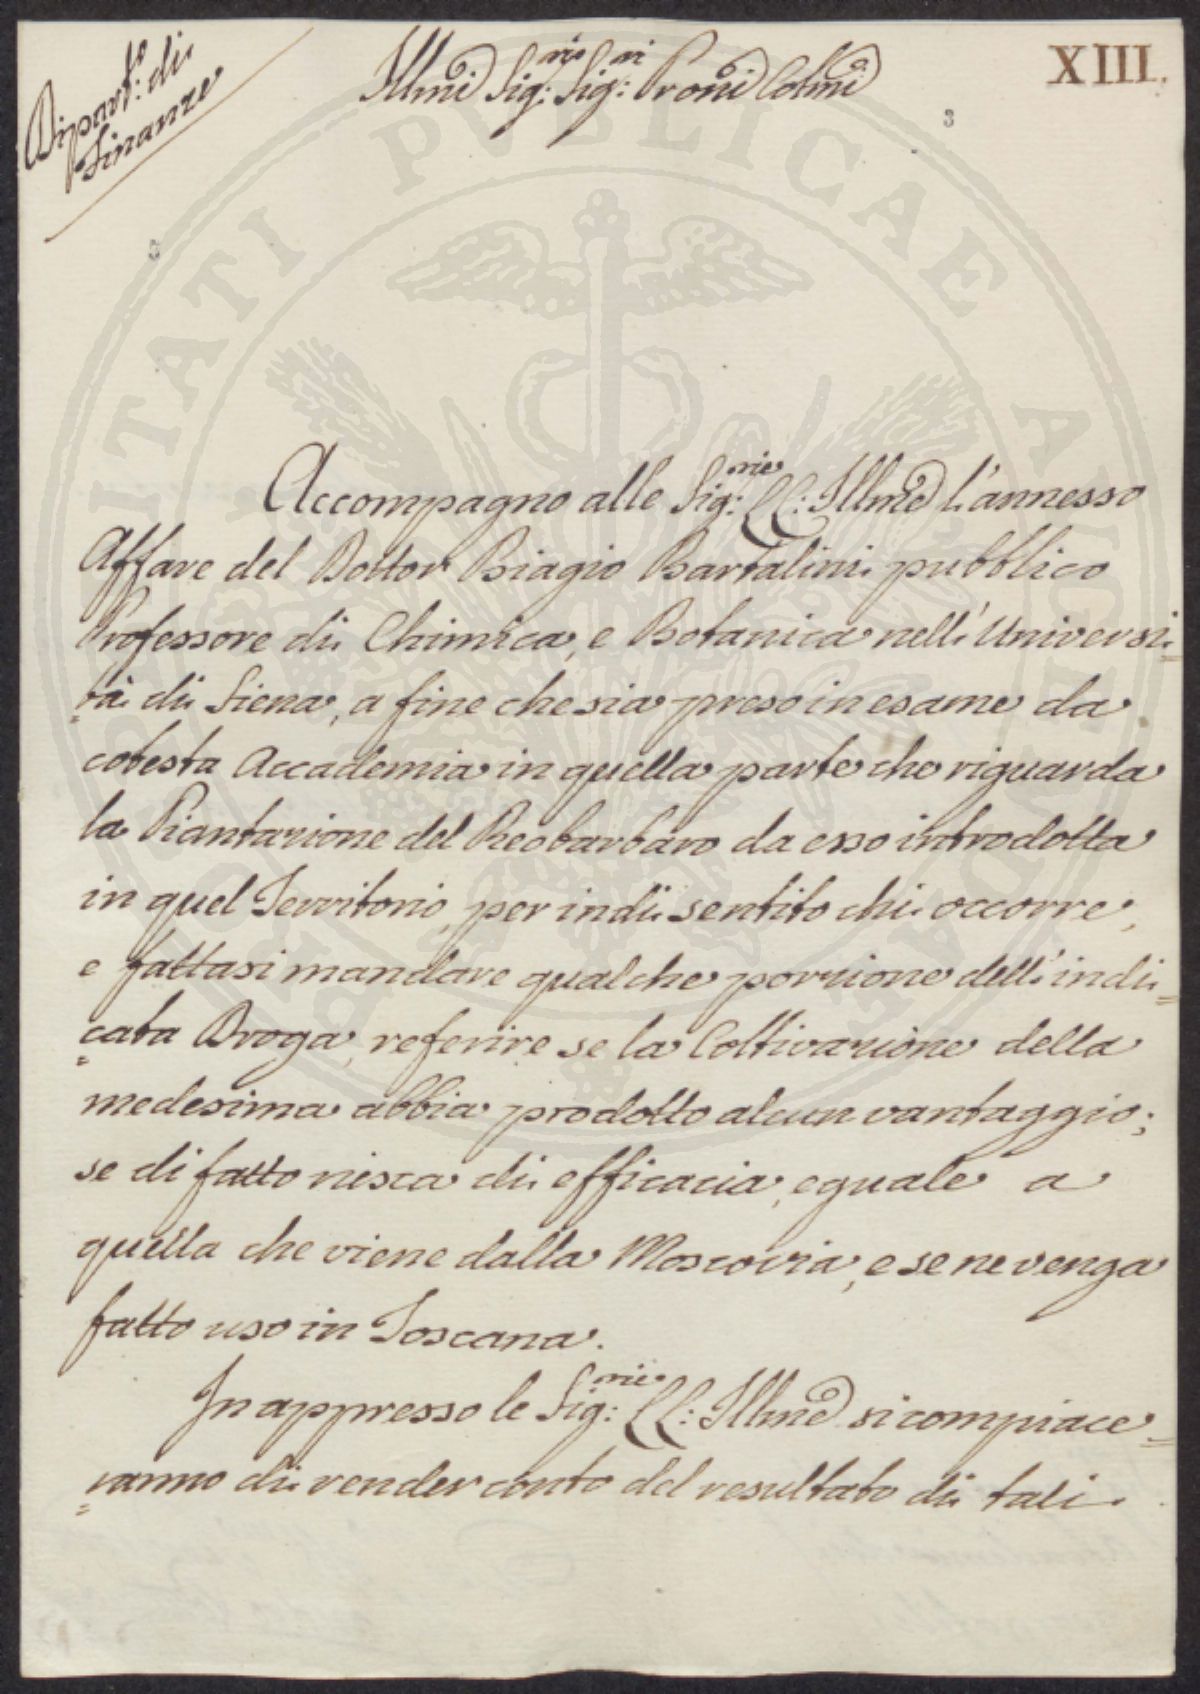 Dipart:to di
Finanze
Illmi Sig:ris Sig:ri Proni Colmi
XIII.
3
PROSPERITATI PUBLICAE AUGENDAE
Accompagno alle Sig:rie LL: Illme l'annesso
Affare del Dottor Biagio Bartalini pubblico
Professore di Chimica, e Botanica nell'Universi=
=tà di Siena, a fine che sia preso in esame da
cotesta Accademia in quella parte che riguarda
la Piantazione del Reobarbaro da esso introdotta
in quel Territorio, per indi sentito chi occorre,
e fattasi mandare qualche porzione dell'indi=
=cata Droga, referire se la Coltivazione della
medesima abbia prodotto alcun vantaggio;
se di fatto riesca di efficacia, eguale a
quella che viene dalla Moscovia, e se ne venga
fatto uso in Toscana.
In appresso le Sig:rie LL: Illme si compiace=
=ranno di render conto del resultato di tali